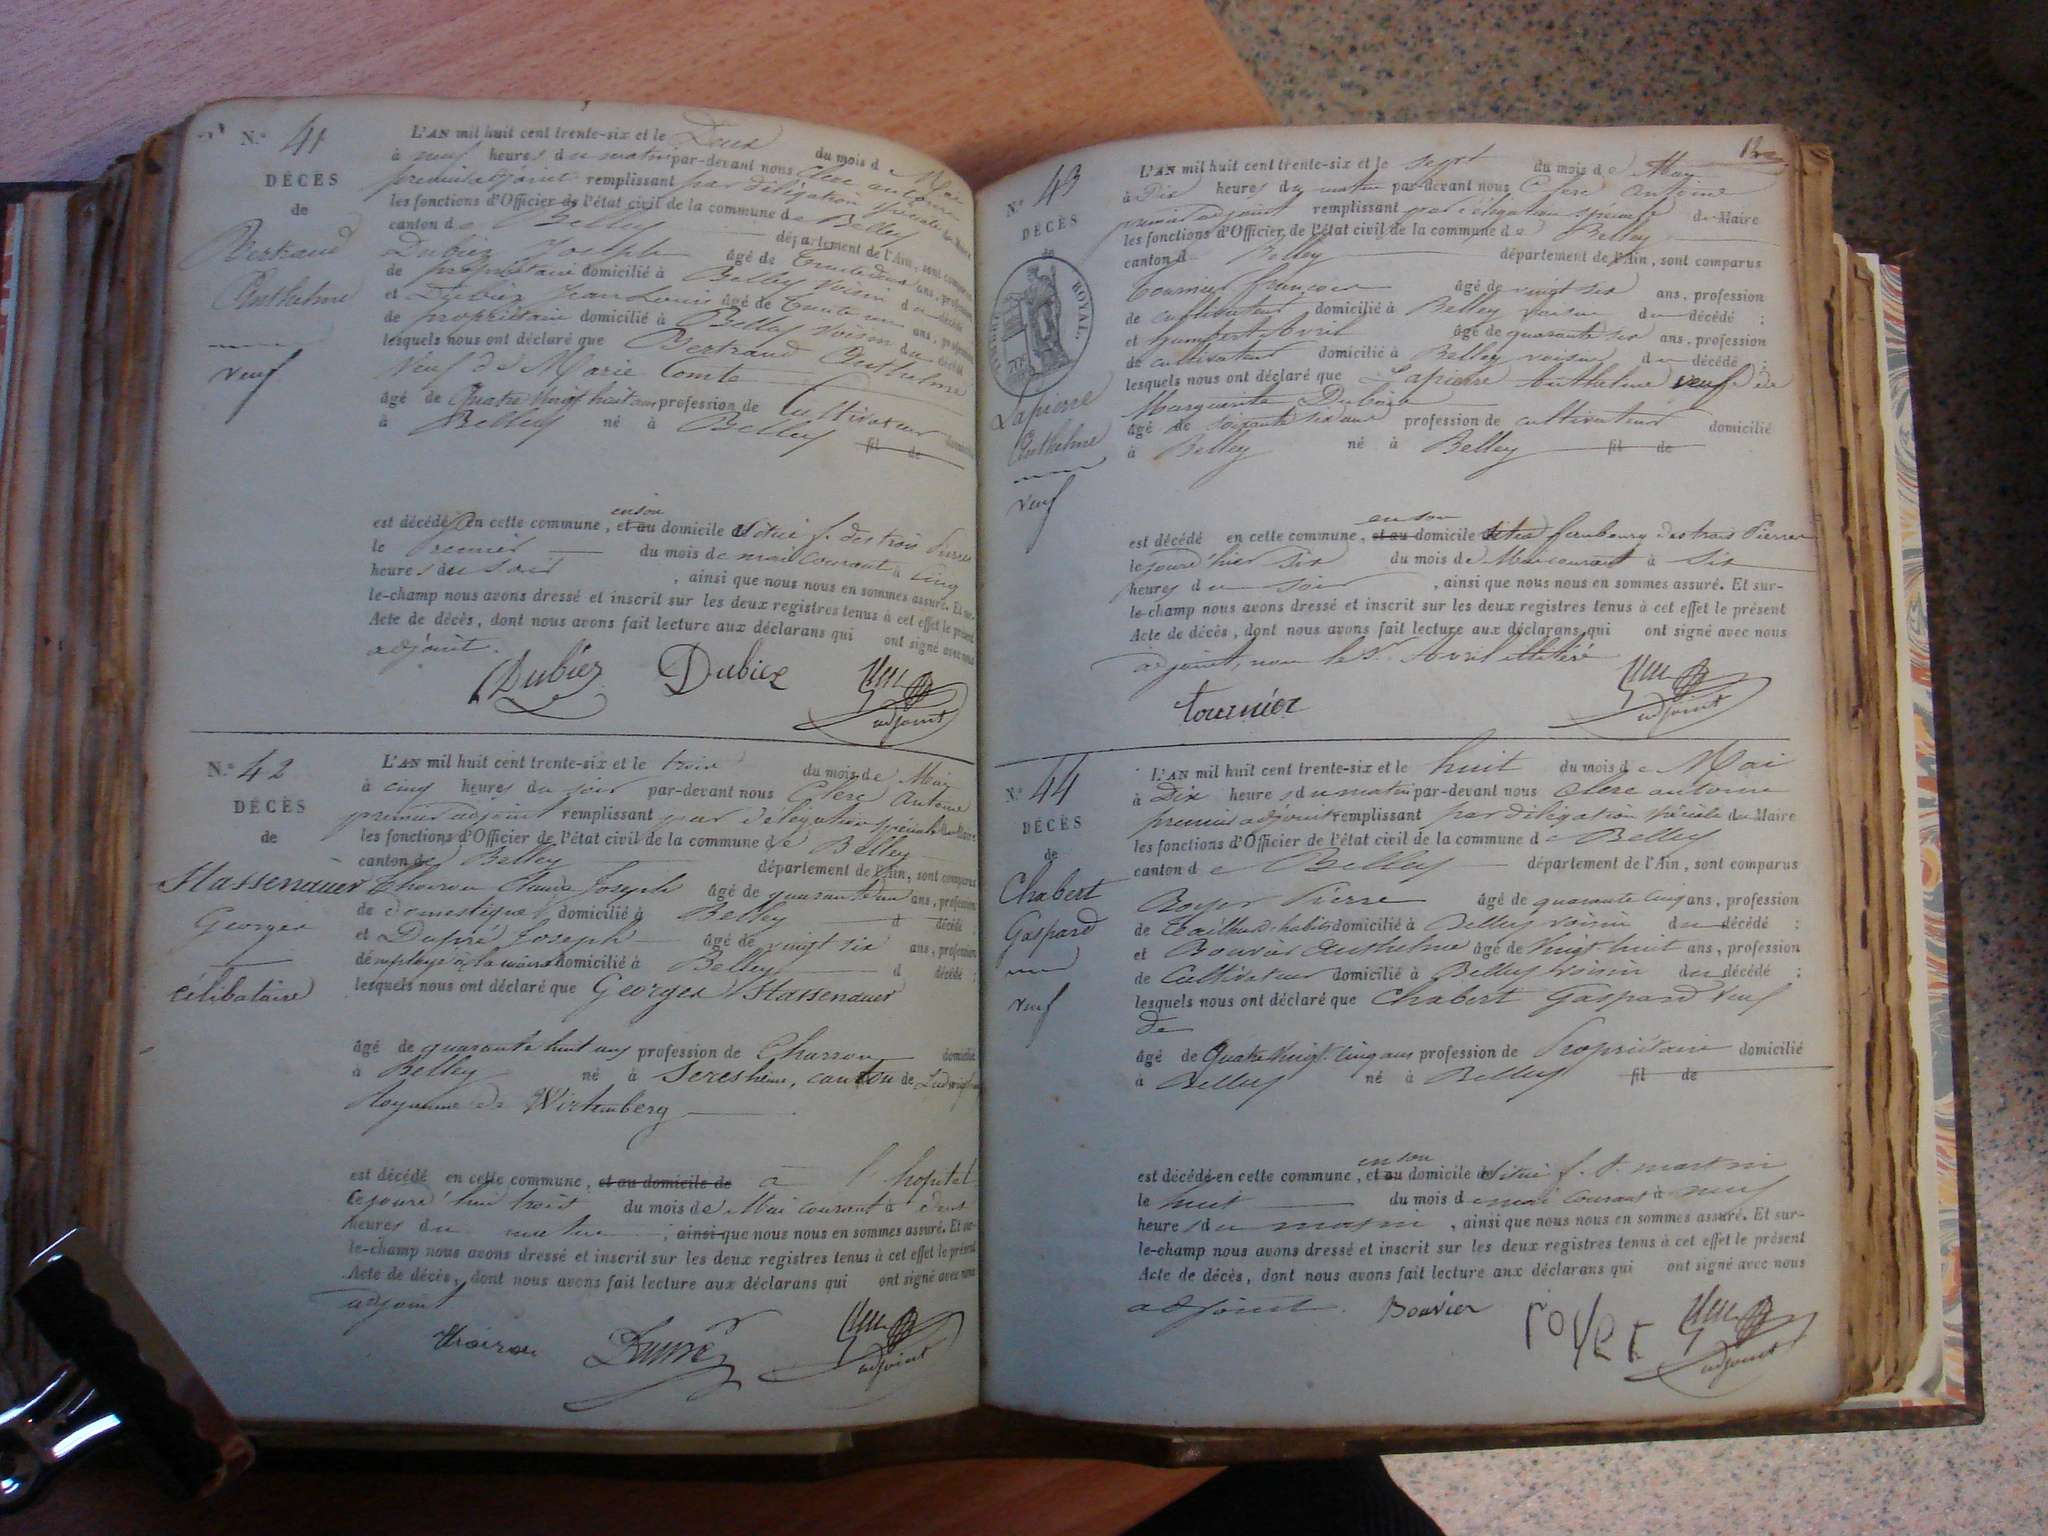 N.º 41
DÉCÈS
de
Bertrand
Anthelme
veuf
L'AN mil huit cent trente-six et le Deux du mois de Mai
à neuf heures du matin par-devant nous Clerc antoine
premier adjoint remplissant par délégation spéciale du Maire
les fonctions d'Officier de l'état civil de la commune de Belley
canton de Belley département de l'Ain, sont comparus
Dubiez Joseph âgé de trente deux ans, profession
de propriétaire domicilié à Belley voisin du décédé
et Dubiez Jean Louis âgé de trente un ans, profession
de propriétaire domicilié à Belley voisin du décédé
lesquels nous ont déclaré que Bertrand Anthelme
veuf de Marie Comte
âgé de quatre vingt huit ans profession de Cultivateur domicilié
à Belley né à Belley fil de
est décédé en cette commune, et au en son domicile situé f. des trois Pierres
le Premier du mois de mai courant à cinq
heures du soir, ainsi que nous nous en sommes assuré. Et sur-
le-champ nous avons dressé et inscrit sur les deux registres tenus à cet effet le présent
Acte de décès, dont nous avons fait lecture aux déclarans qui ont signé avec nous
adjoint.
Dubiez Dubiez adjoint
N.º 42
DÉCÈS
de
Stassenauer
Georges
célibataire
L'AN mil huit cent trente-six et le trois du mois de Mai
à cinq heures du soir par-devant nous Clerc Antoine
premier adjoint remplissant par délégation spéciale du Maire
les fonctions d'Officier de l'état civil de la commune de Belley
canton de Belley département de l'Ain, sont comparus
Claude Joseph âgé de quarante un ans, profession
de domestique domicilié à Belley d décédé :
et Dupré Joseph âgé de vingt six ans, profession
d'employé à la mairie domicilié à Belley d décédé ;
lesquels nous ont déclaré que Georges Stassenauer
âgé de quarante huit ans profession de Charron domicilié
à Belley né à Seresheim, canton de
Royaume de Wirtemberg
est décédé en cette commune, et au domicile de à l'hopital
cejourd'hui trois du mois de Mai courant à deux
heures du matin ; ainsi que nous nous en sommes assuré. Et sur-
le-champ nous avons dressé et inscrit sur les deux registres tenus à cet effet le présent
Acte de décès, dont nous avons fait lecture aux déclarans qui ont signé avec nous
adjoint
Dupré adjoint
N.º 43
DÉCÈS
de
TIMBRE ROYAL.
Lapierre
Anthelme
veuf
L'AN mil huit cent trente-six et le sept du mois de Mai
à Dix heures du matin par-devant nous Clerc Antoine
premier adjoint remplissant par délégation spéciale du Maire
les fonctions d'Officier de l'état civil de la commune de Belley
canton d Belley département de l'Ain, sont comparus
Tournier françois âgé de vingt six ans, profession
de cultivateur domicilié à Belley voisin du décédé ;
et humbert Avril âgé de quarante six ans, profession
de cultivateur domicilié à Belley voisin du décédé ;
lesquels nous ont déclaré que Lapierre Anthelme veuf de
Marguerite
âgé de soixante six ans profession de cultivateur domicilié
à Belley né à Belley fil de
est décédé en cette commune, et au en son domicile situé faubourg des trois Pierres
le jour d'hier six du mois de Mai courant à six
heures du soir, ainsi que nous nous en sommes assuré. Et sur-
le-champ nous avons dressé et inscrit sur les deux registres tenus à cet effet le présent
Acte de décès, dont nous avons fait lecture aux déclarans qui ont signé avec nous
adjoint, non le Sr. Avril illitéré
tournier adjoint
N.º 44
DÉCÈS
de
Chabert
Gaspard
veuf
L'AN mil huit cent trente-six et le huit du mois de Mai
à Dix heures du matin par-devant nous Clerc antoine
premier adjoint remplissant par délégation spéciale du Maire
les fonctions d'Officier de l'état civil de la commune de Belley
canton de Belley département de l'Ain, sont comparus
Royer Pierre âgé de quarante cinq ans, profession
de tailleur d'habits domicilié à Belley voisin du décédé :
et Bouvier Anthelme âgé de vingt huit ans, profession
de Cultivateur domicilié à Belley voisin du décédé ;
lesquels nous ont déclaré que Chabert Gaspard veuf
de
âgé de Quatre Vingt cinq ans profession de Propriétaire domicilié
à Belley né à Belley fil de
est décédé en cette commune, et au en son domicile situé f. St. martin
le huit du mois de mai courant à neuf
heures du matin, ainsi que nous nous en sommes assuré. Et sur-
le-champ nous avons dressé et inscrit sur les deux registres tenus à cet effet le présent
Acte de décès, dont nous avons fait lecture aux déclarans qui ont signé avec nous
adjoint. Bouvier royer adjoint